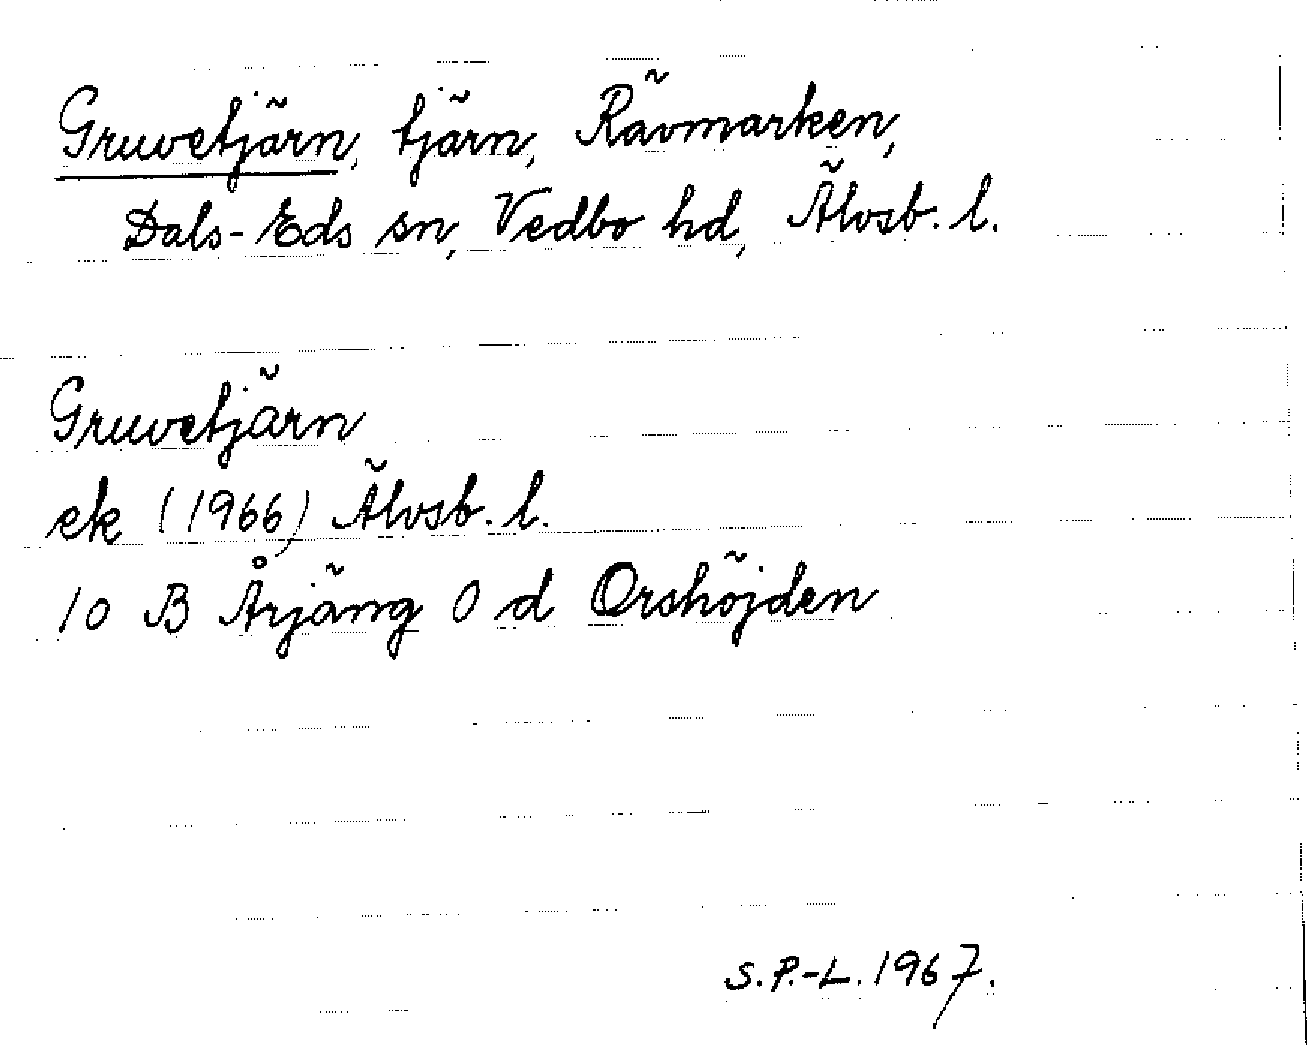 Gruvetjärn, tjärn, Rävmarken,
Dals-Eds sn, Vedbo hd, Älvsb. l.
Gruvetjärn
ek (1966) Älvsb. l.
10 B Årjäng 0 d Orshöjden
S.P.-L. 1967.